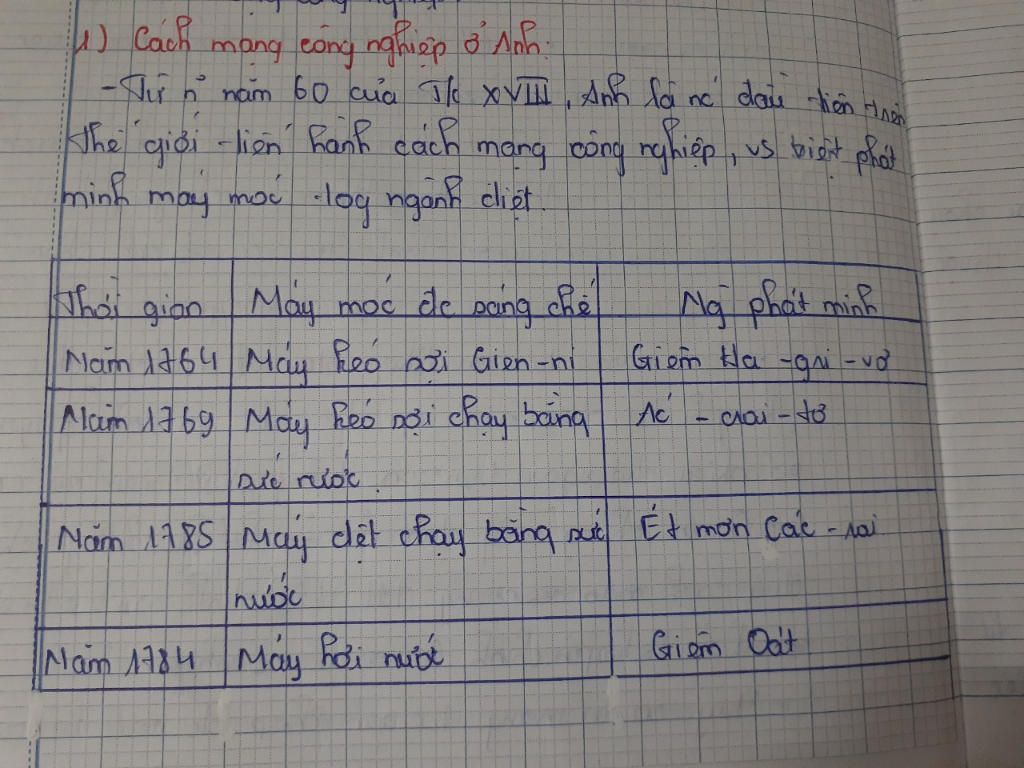 1) Cách mạng công nghiệp ở Anh:
- Từ n~ năm 60 của TK XVIII, Anh là nc đầu tiên trên
thế giới tiến hành cách mạng công nghiệp, vs việt phát
minh máy móc trog ngành diệt.
Thời gian Máy móc đc sáng chế Ng phát minh
Năm 1764 Máy kéo sợi Gien-ni Giêm Ha-gri-vơ
Năm 1769 Máy kéo sợi chạy bằng Ác-crai-tơ
sức nước.
Năm 1785 Máy dệt chạy bằng sức Ét mơn Các-rai
nước
Năm 1784 Máy hơi nước Giêm Oát